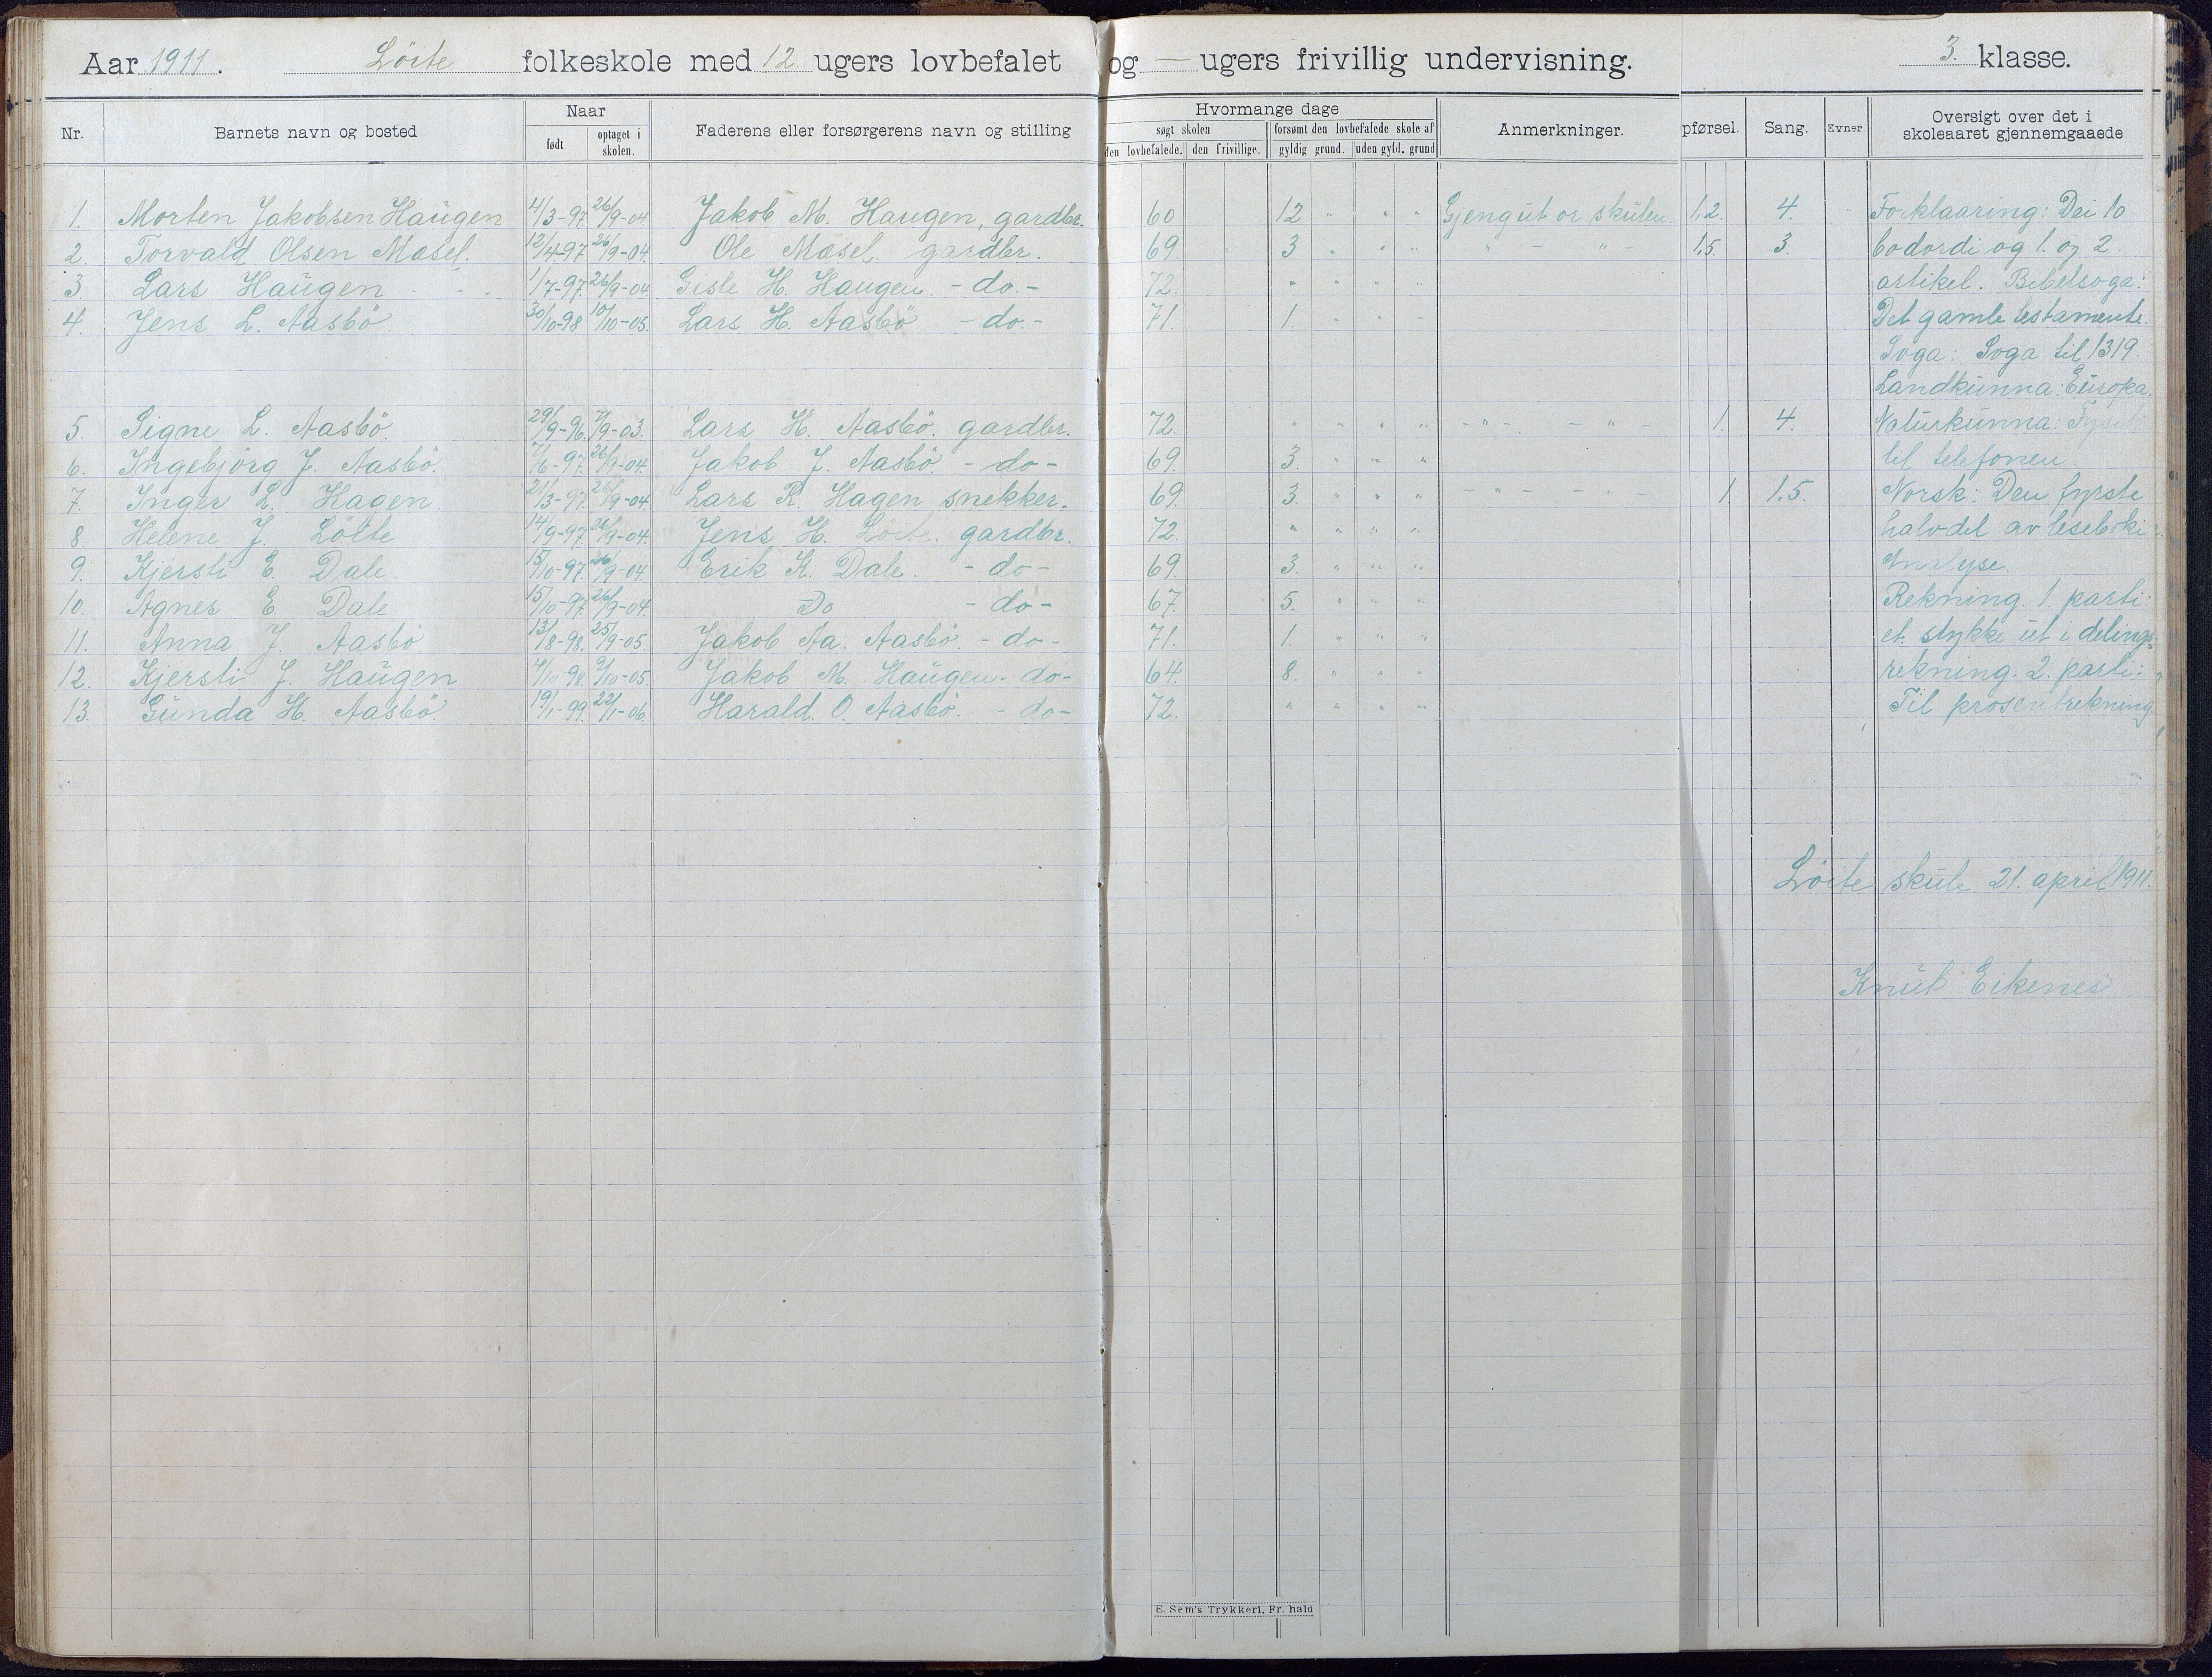 Aar 1911. Löite folkeskole med 12 ugers lovbefalet og — ugers frivillig undervisning. 3. klasse.
Nr. Barnets navn og bosted Naar født optaget i skolen. Faderens eller forsørgerens navn og stilling Hvormange dage søgt skolen den lovbefalede. den frivillige. forsømt den lovbefalede skole af gyldig grund. uden gyld. grund Anmerkninger. pførsel. Sang. Evner Oversigt over det i skoleaaret gjennemgaaede
1. Morten Jakobsen Haugen 4/3-97. 26/9-04. Jakob M. Haugen, gardbr. 60 12 " " " Gjengut or skulen. 1.2. 4. " Forklaaring: Dei 10
2. Torvald Olsen Mosel. 12/4-97 26/9-04. Ole Mosel. gardbr. 69. 3 " " " " - " - 1.5. 3. bodordi og 1. og 2.
3. Lars Haugen 1/7-97. 26/9-04. Gisle H. Haugen. - do. - 72. " " " " artikel. Bibelsoga:
4. Jens L. Aasbö. 30/10-98 10/10-05. Lars H. Aasbö - do. - 71. 1. " " " Det gamle testamente.
Soga: Soga til 1319.
Landkunna: Europa.
5. Signe L. Aasbö. 29/9-96. 7/9-03. Lars H. Aasbö. gardbr. 72. " " " " - " - - " - 1. 4. Naturkunna: Fysik
6. Ingebjörg J. Aasbö. 7/6-97. 26/9-04. Jakob J. Aasbö. - do - 69. 3. " " " til telefonen.
7. Inger L. Hagen. 21/3-97. 26/9-04 Lars R. Hagen snekker. 69. 3. " " " - " - - " - 1. 1.5. Norsk: Den fyrste
8 Helene J. Löite 14/9-97. 26/9-04. Jens H. Löite. gardbr. 72. " " " " halvdel av leseboki
9. Kjersti E. Dale. 15/10-97. 26/9-04. Erik K. Dale. - do - 69. 3. " " " Analyse.
10. Agnes E. Dale 15/10-97. 26/9-04. Do - do - 67. 5. " " " Rekning. 1. parti:
11. Anna J. Aasbö. 13/8-98. 25/9-05. Jakob Aa. Aasbö. - do - 71. 1. " " " et stykke ut i delings-
12. Kjersti J. Haugen 4/10-98. 9/10-05. Jakob M. Haugen. - do - 64. 8. " " " rekning. 2. parti:
13. Gunda H. Aasbö. 19/1-99. 22/1-06. Harald O. Aasbö. - do - 72. " " " " Til prosentrekning.
Löite skule 21. april 1911.
Knut Eikenes
E. Sem's Trykkeri, Fr. hald